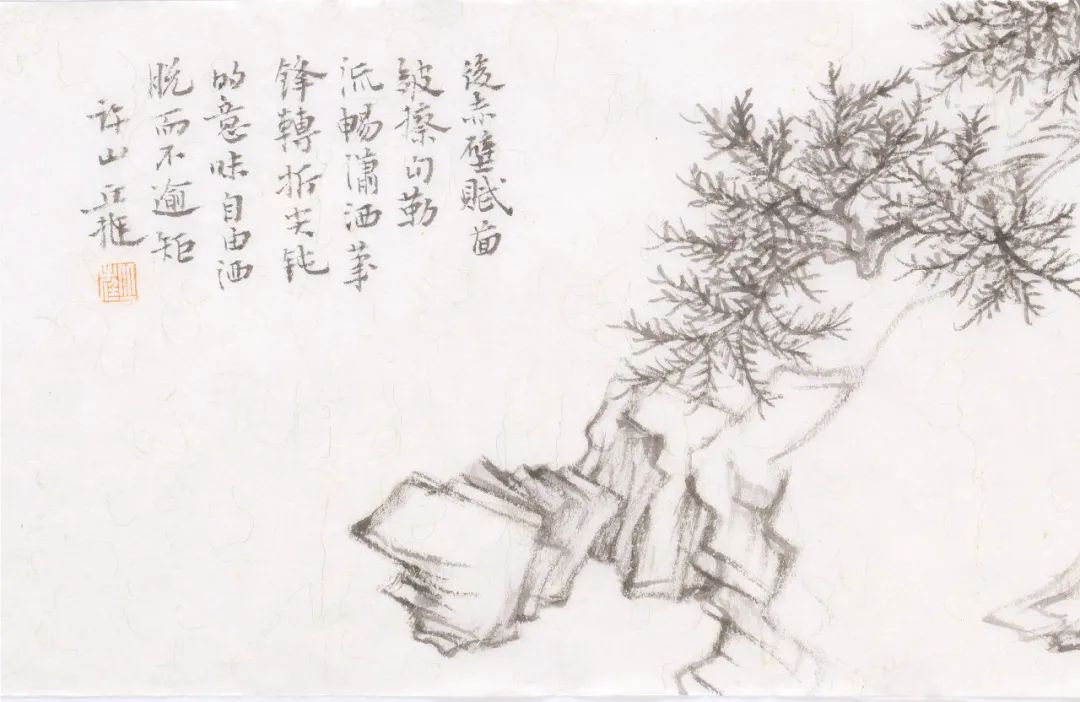 後赤壁賦面
皴擦勾勒
流暢瀟洒筆
锋轉折尖钝
的意味自由洒
脱而不逾矩
許山